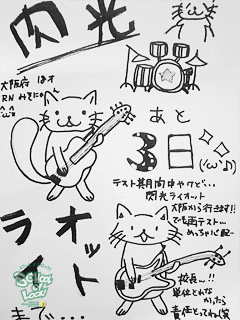 閃光
大阪府 はオ
RN みそにゃん
あと
3日
(・ω・)
テスト期間中やけど…
閃光ライオット
大阪から行きます!!
でも再テスト…
めっちゃ心配ー
ライオット
まで…
校長〜!!
単位とれんかったら
責任とってね(笑)